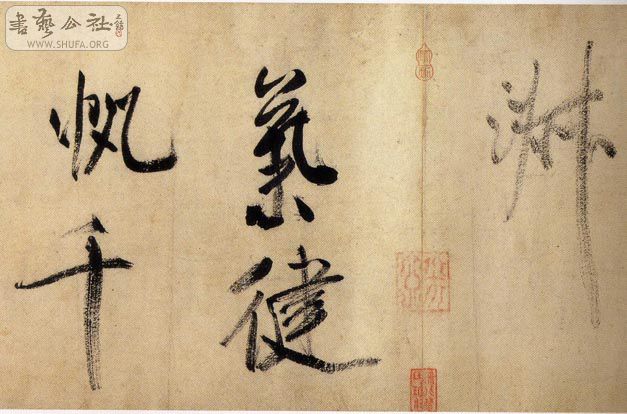 淑
氣健
帆千
書藝公社
WWW.SHUFA.ORG